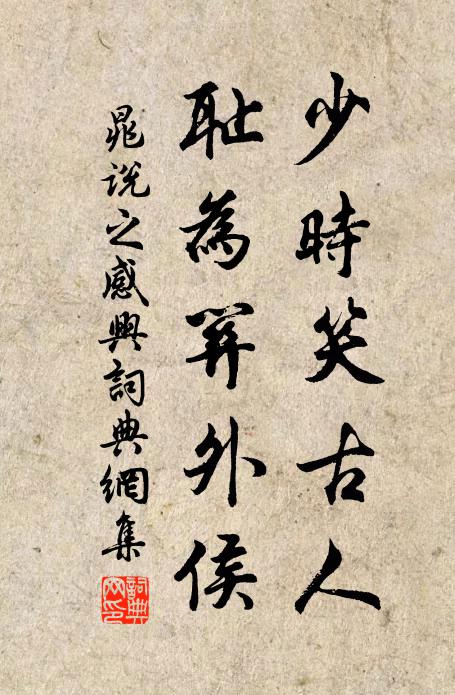 少時笑古人
耻為關外侯
晁说之感興詞典網集
詞典網印